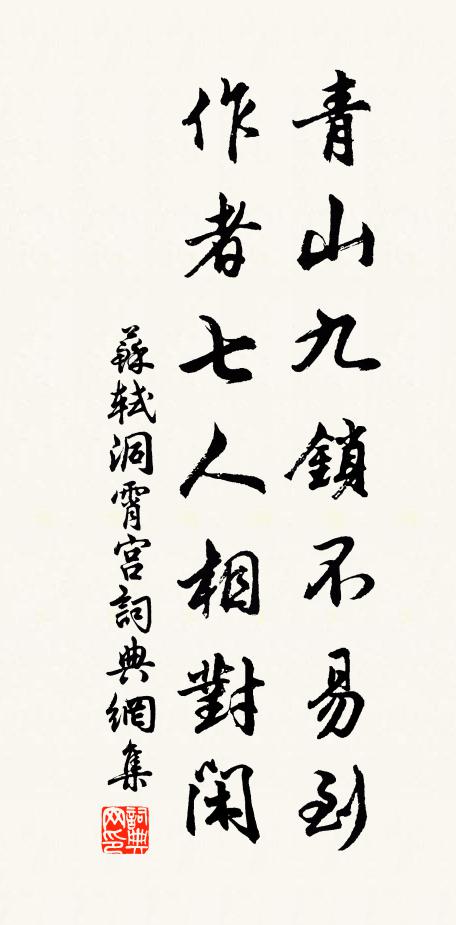 青山九鎖不易到
作者七人相對閑
蘇軾洞霄宮詞典網集
詞典网印